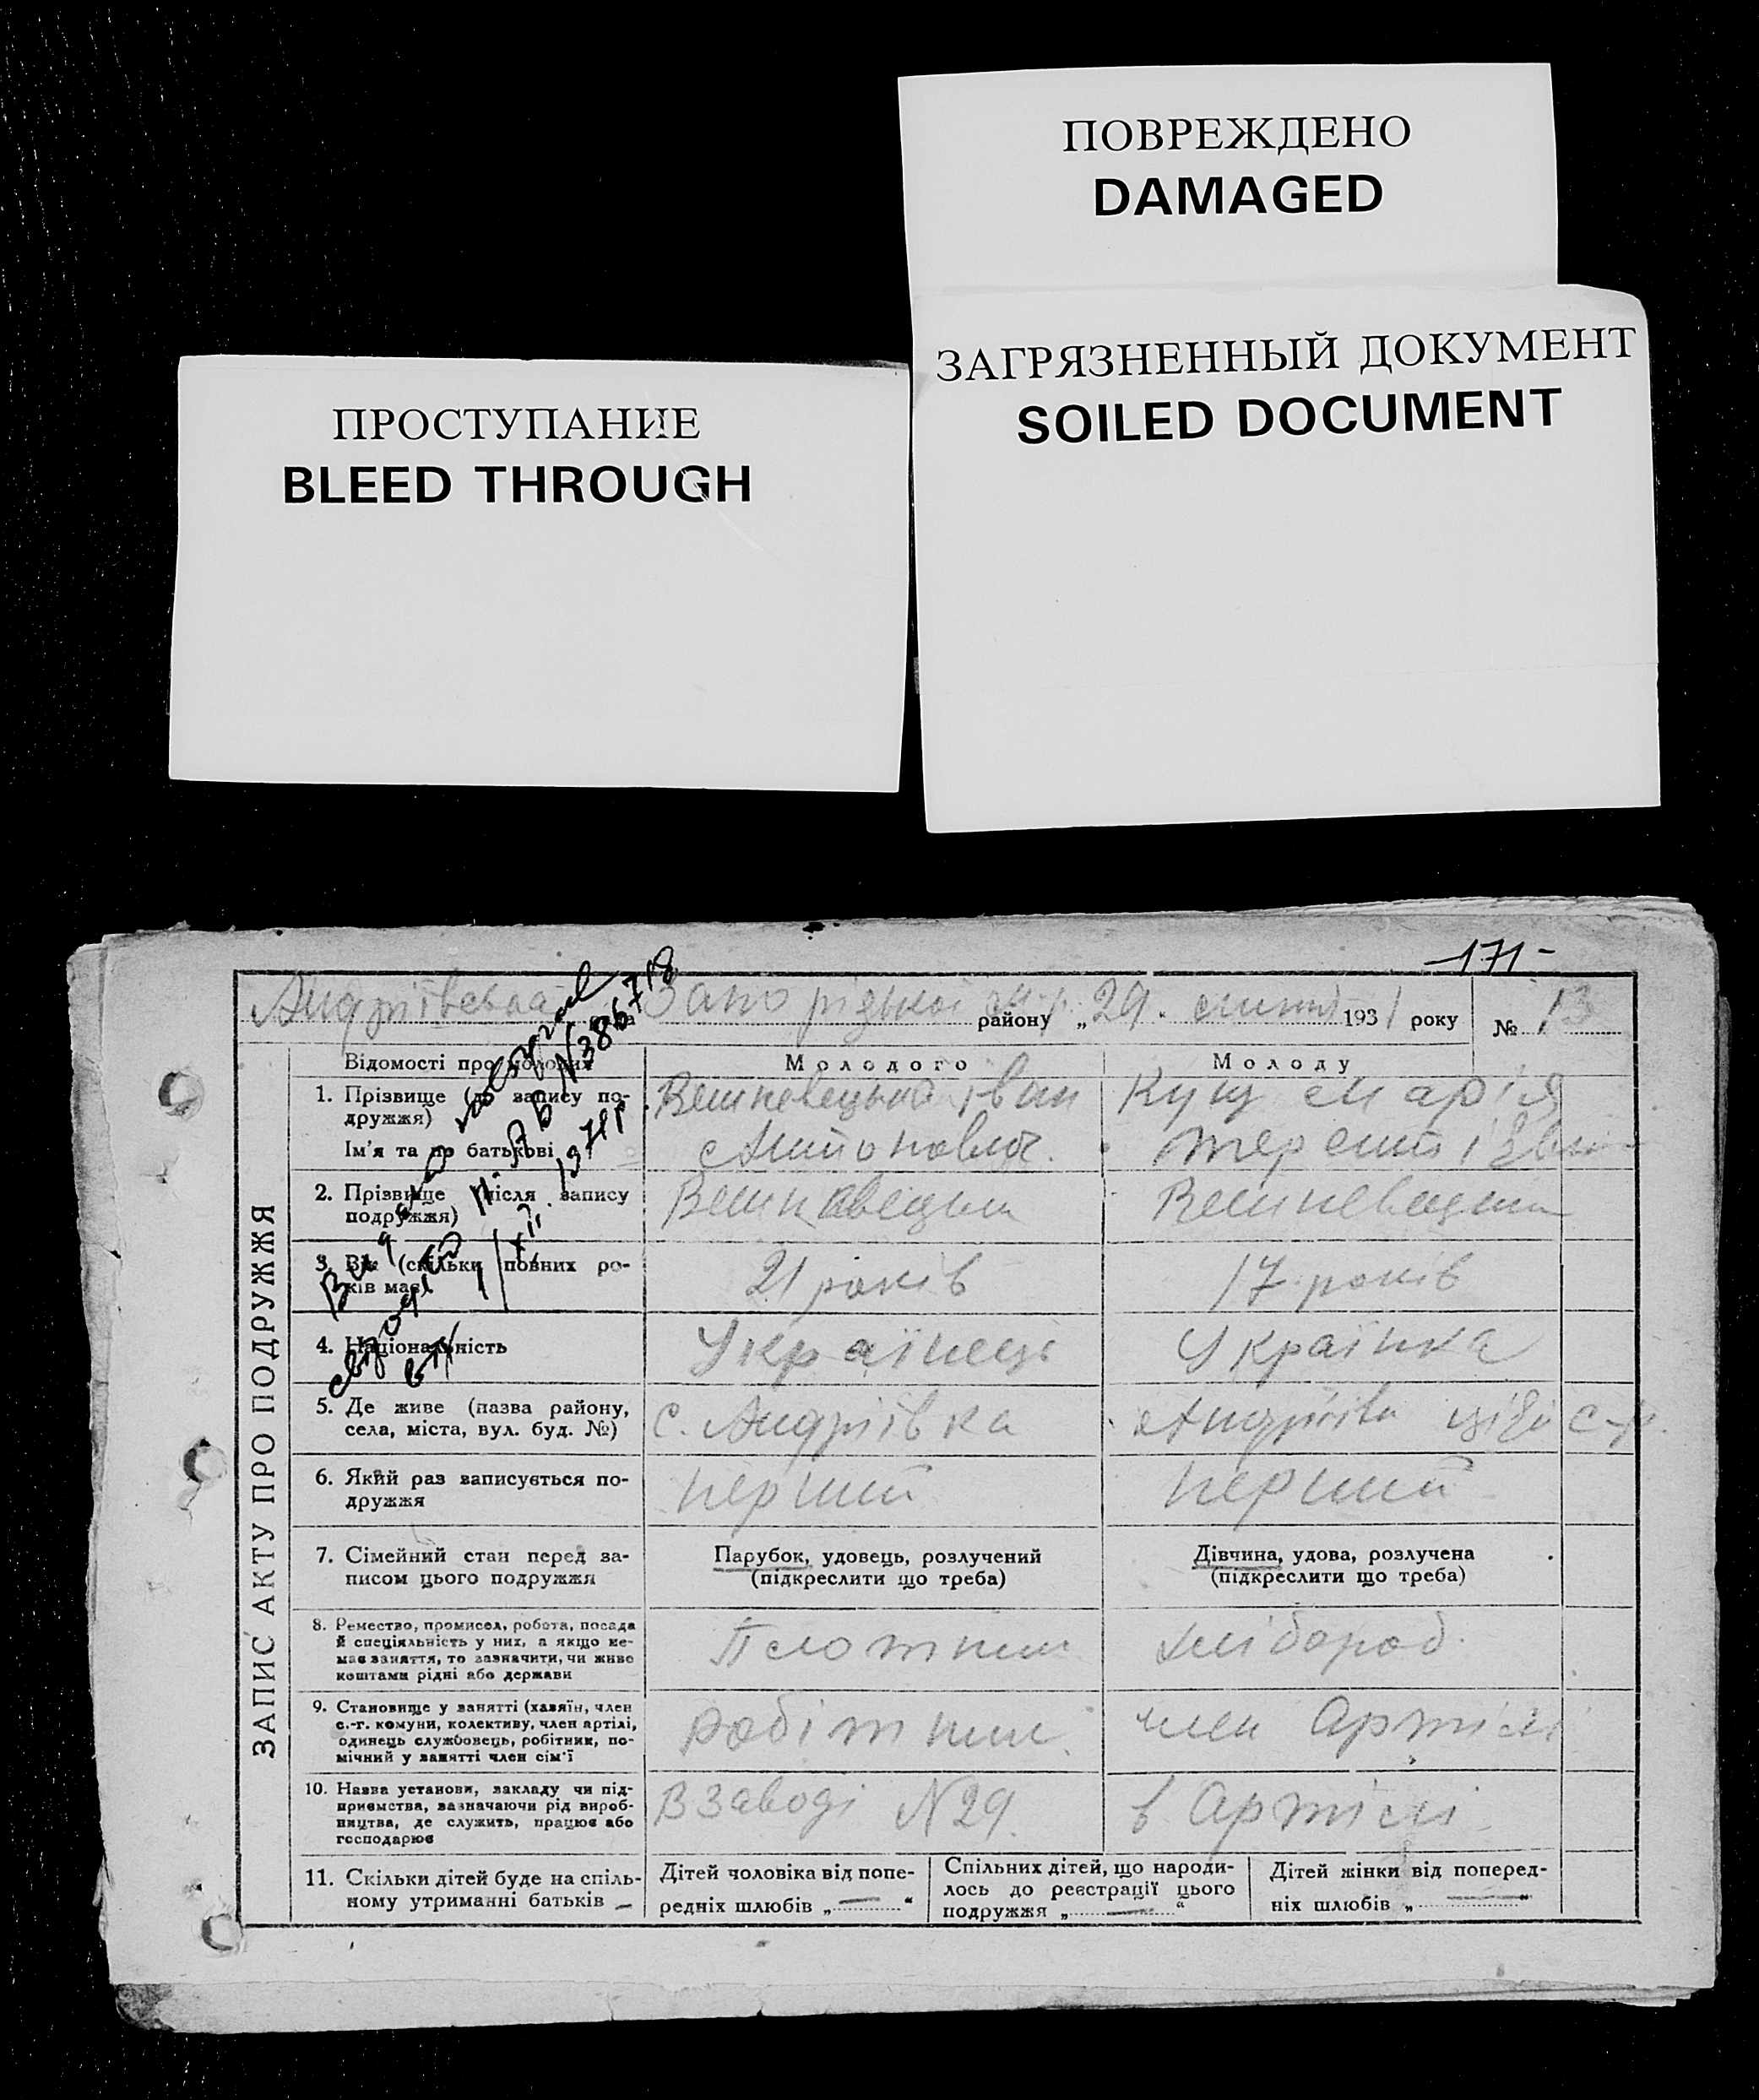 ПОВРЕЖДЕНО
DAMAGED
ЗАГРЯЗНЕННЫЙ ДОКУМЕНТ
SOILED DOCUMENT
ПРОСТУПАНИЕ
BLEED THROUGH
171-
Андріївська району „29. 1931 року № 13
ЗАПИС АКТУ ПРО ПОДРУЖЖЯ
Відомості про молодих Молодого Молоду
1. Прізвище (до запису по-
дружжя) Іван Кущ Марія
Ім'я та по батькові Антонович.
2. Прізвище (після запису
подружжя)
3. Вік (скільки повних ро-
ків має) 21 років 17 років
4. Національність Українець Українка
5. Де живе (назва району,
села, міста, вул. буд. №) с. Андріївка
6. Який раз записується по-
дружжя перший перший
7. Сімейний стан перед за-
писом цього подружжя
Парубок, удовець, розлучений
(підкреслити що треба)
Дівчина, удова, розлучена
(підкреслити що треба)
8. Ремество, промисел, робота, посада
й спеціяльність у них, а якщо не-
має заняття, то зазначити, чи живе
коштами рідні або держави
Плотник хлібороб.
9. Становище у занятті (хазяїн, член
с.-г. комуни, колективу, член артілі,
одинець службовець, робітник, по-
мічний у занятті член сім'ї
робітник член Артілі
10. Назва установи, закладу чи під-
приємства, зазначаючи рід вироб-
ництва, де служить, працює або
господарює
В Заводі N29. в Артілі
11. Скільки дітей буде на спіль-
ному утриманні батьків —
Дітей чоловіка від попе-
редніх шлюбів „ — “
Спільних дітей, що народи-
лось до реєстрації цього
подружжя „ — “
Дітей жінки від поперед-
ніх шлюбів „ — “